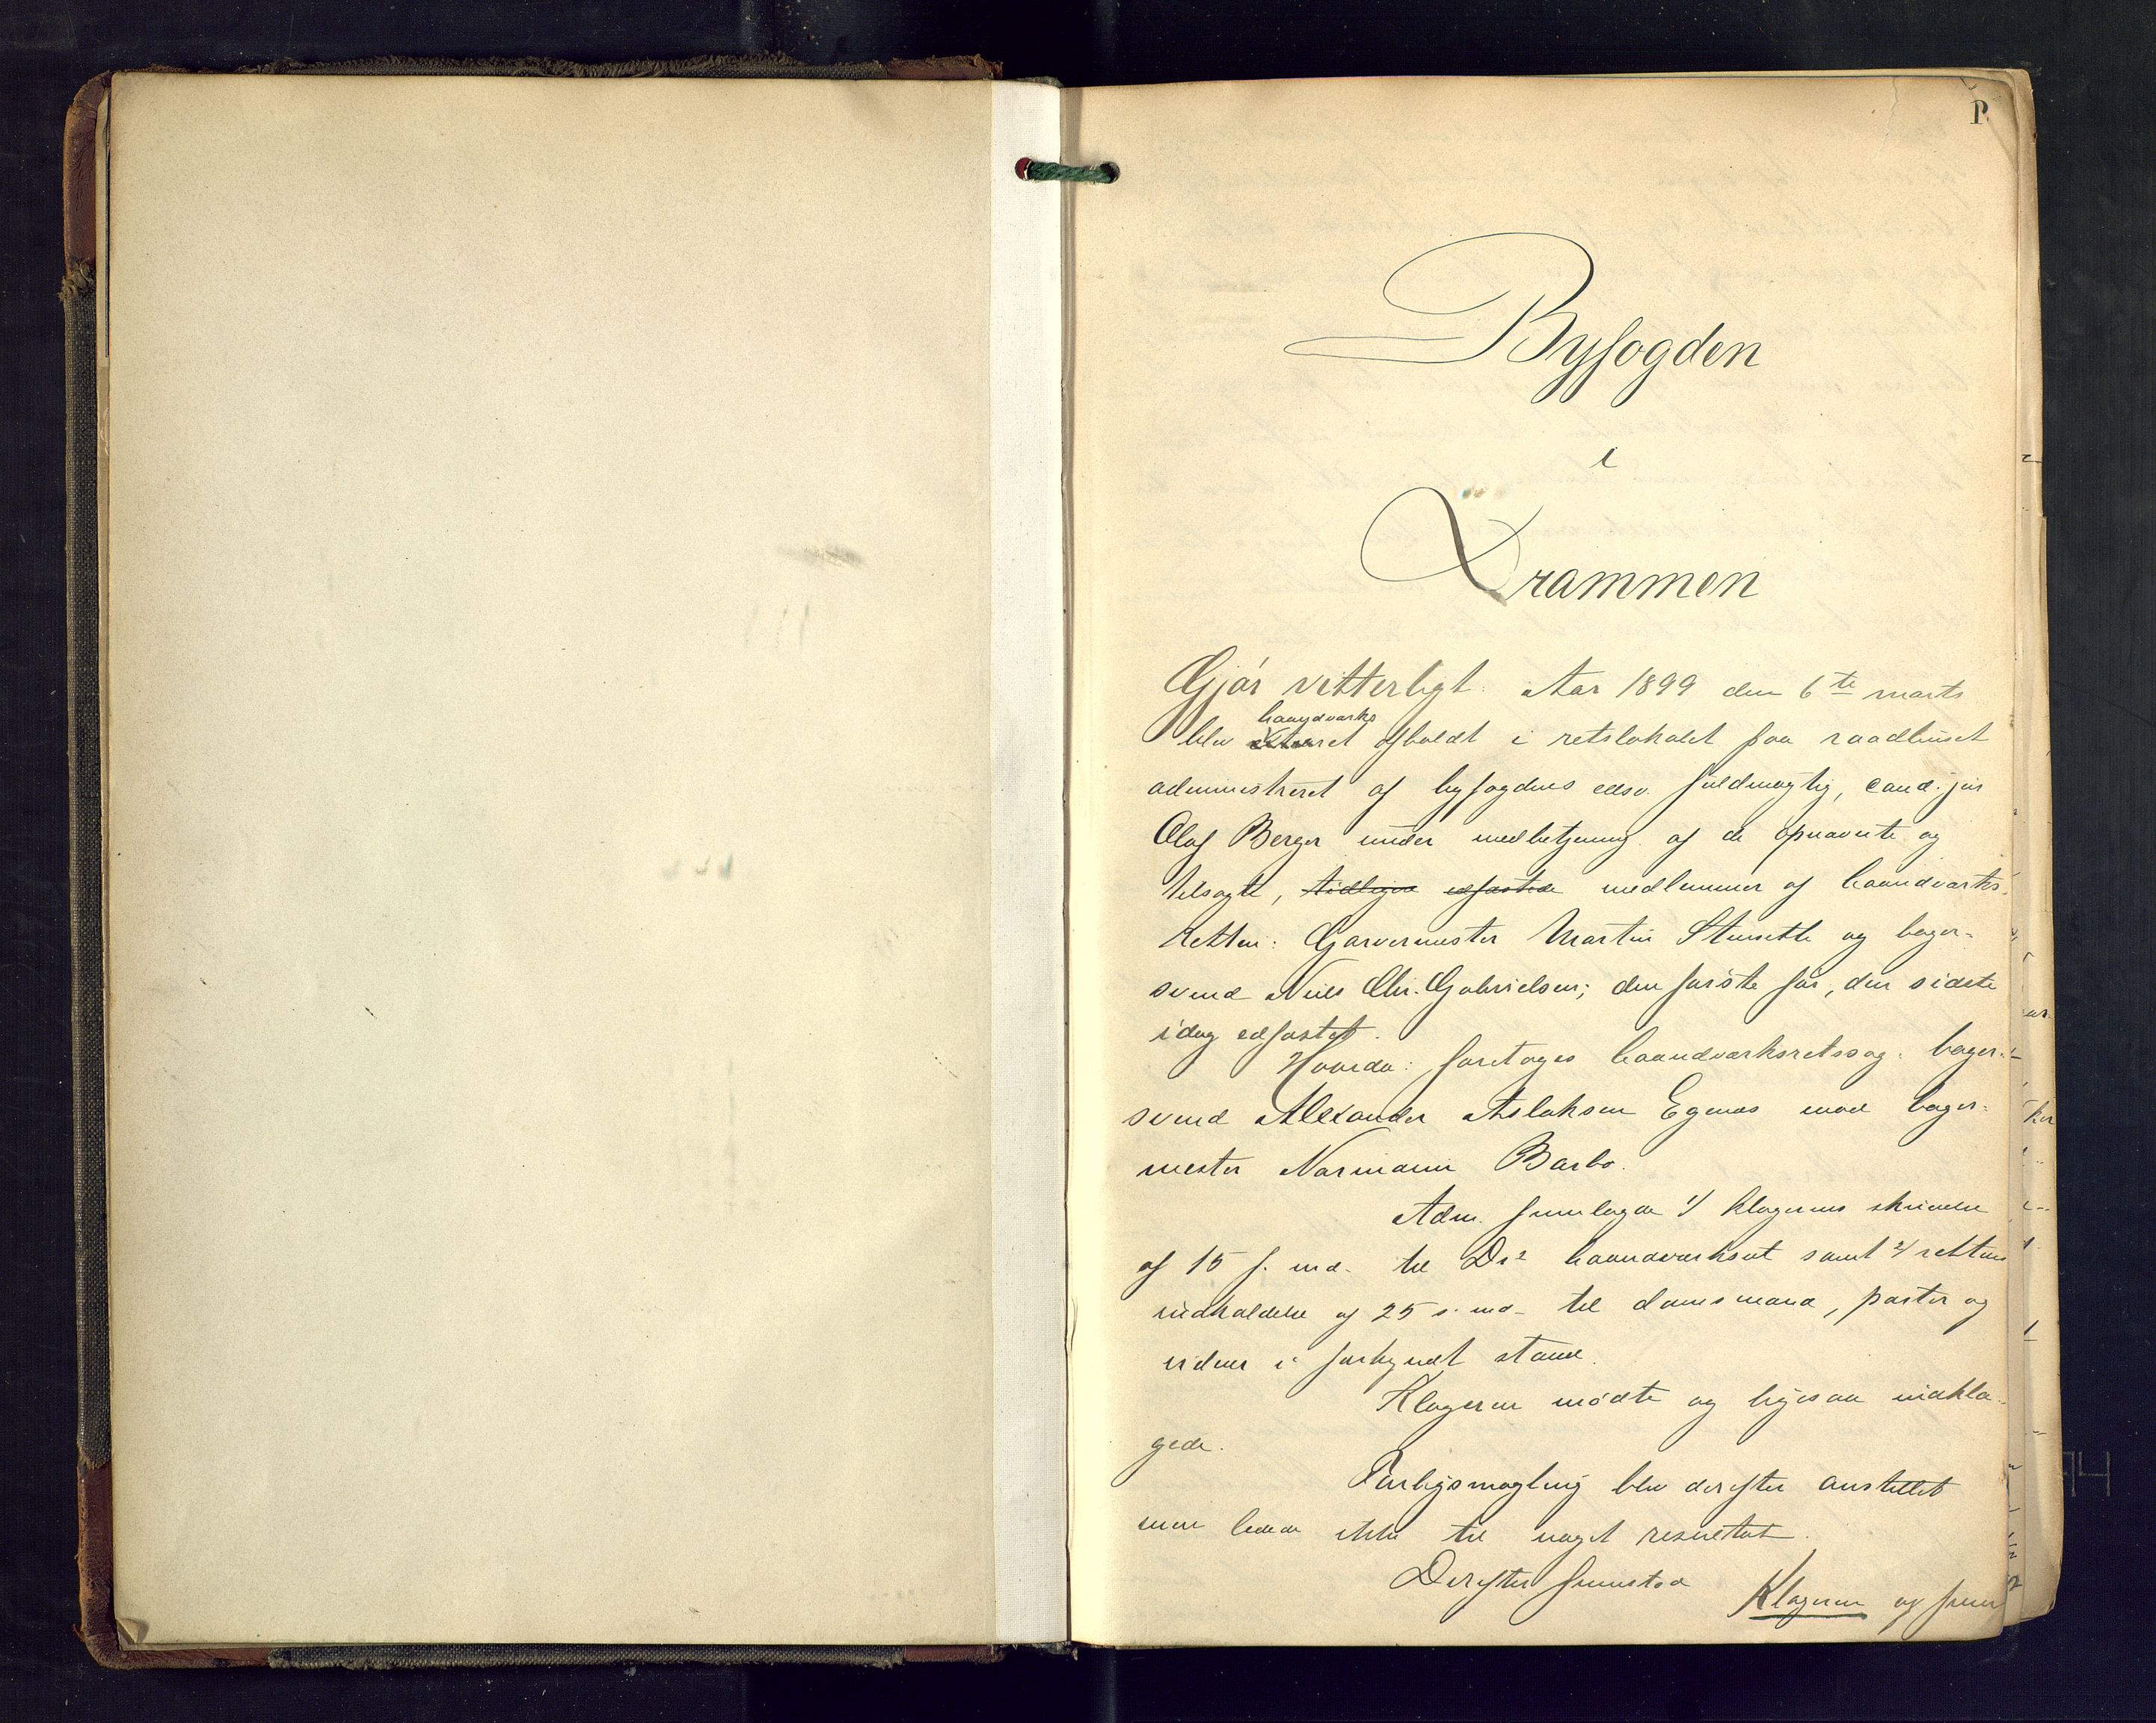 1.
Byfogden
i
Drammen
Gjør vitterligt: Aar 1899 den 6te marts
haandværks
blev ret afholdt i retslokalet paa raadhuset
administreret af byfogdens edsv. fuldmægtig, cand. jur
Olaf Berger under medbetjening af de opnævnte og
tilsagte, tidligere edfæstede medlemmer af haandværks-
retten: Garvermester Martin Stensetle og bager-
svend Nils Chr. Gabrielsen; den første før, den sidste
idag edfæstet.
Hvorda: foretoges haandværksretssag: bager-
svend Alexander Aslaksen Egenæs mod bager-
mester Normann Barbo.
Adm. fremlagde 1/ klagerens skrivelse
af 15 f. md. til Ds haandværksret samt 2/ rettens
indkaldelse af 25 s. md. til domsmænd, parter og
vidner i forkyndt stand.
Klageren mødte og ligesaa indkla-
gede.
Forligsmægling blev derefter anstillet
men ledede ikke til noget resultat.
Derefter fremstod Klageren og frem